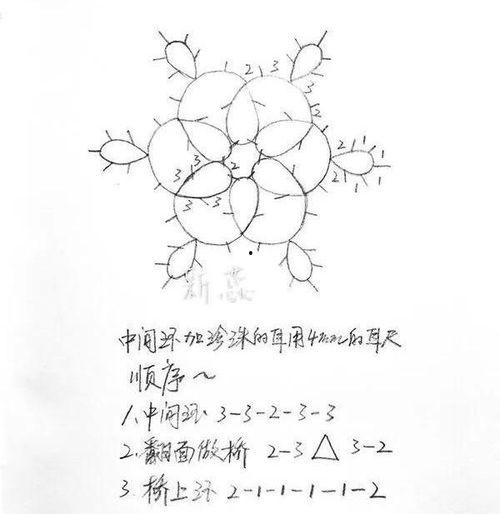 2 3
3
2
2 1 1
3 2 2 1
3 3 3 1
新蕊
中间环加珍珠的耳用4mm的耳尺
顺序~
1.中间环 3-3-2-3-3
2.翻面做桥 2-3△3-2
3.桥上环 2-1-1-1-1-2